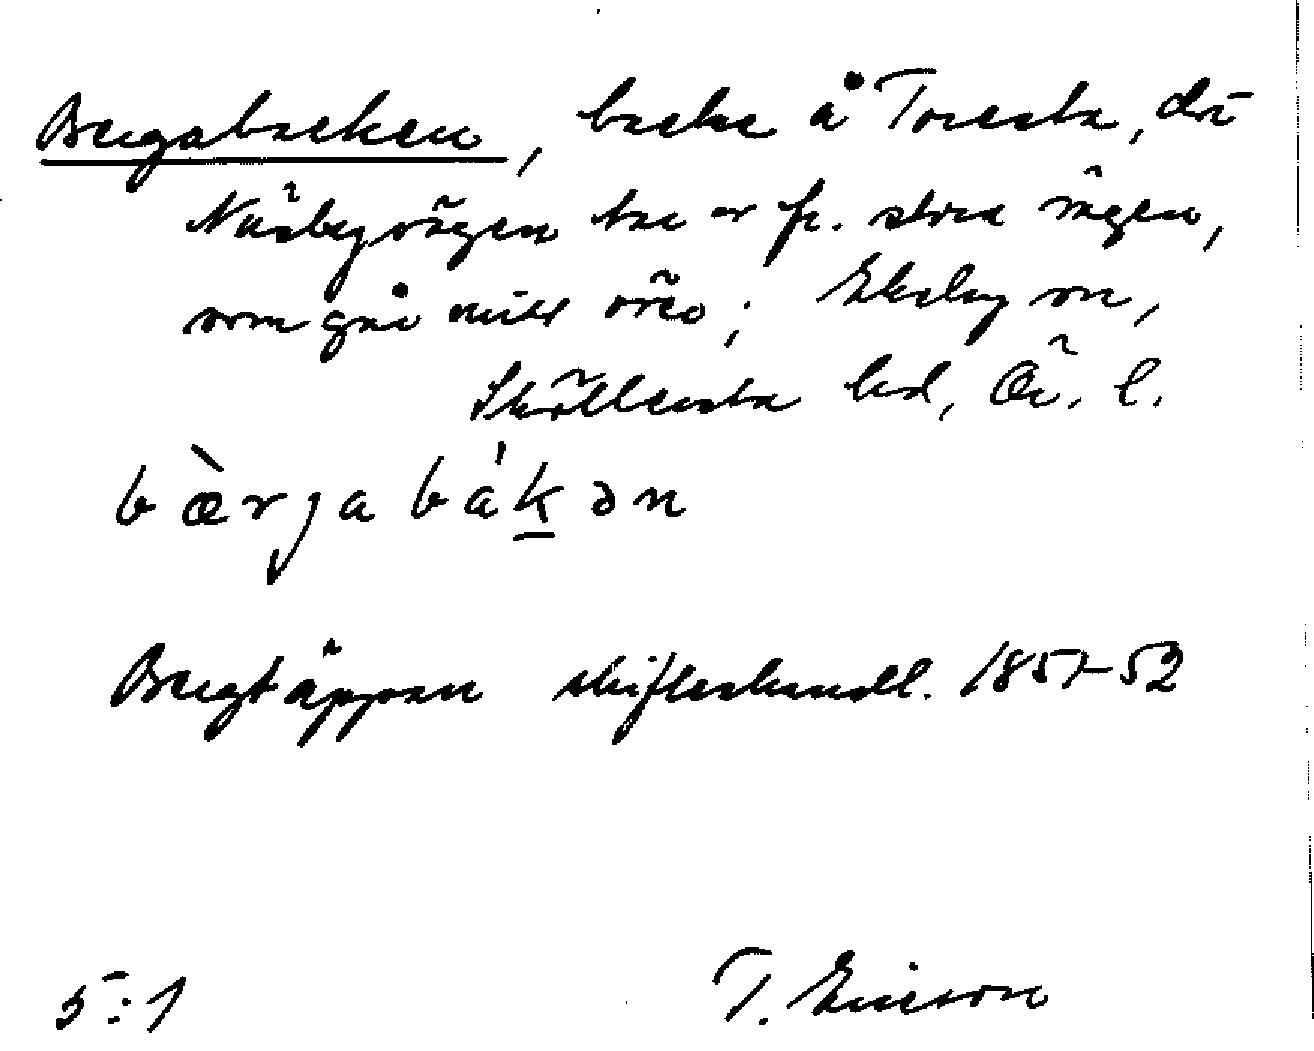 Bergabacken, backe å Toresta, där
Näsbyvägen tar av fr. stora vägen,
som går mitt över; Ekeby sn,
Sköllersta hd, Ör. l.
bæ̀rjabák̠ən
Bergtäppan skifteshandl. 1851-52
5:1
T. Ericson